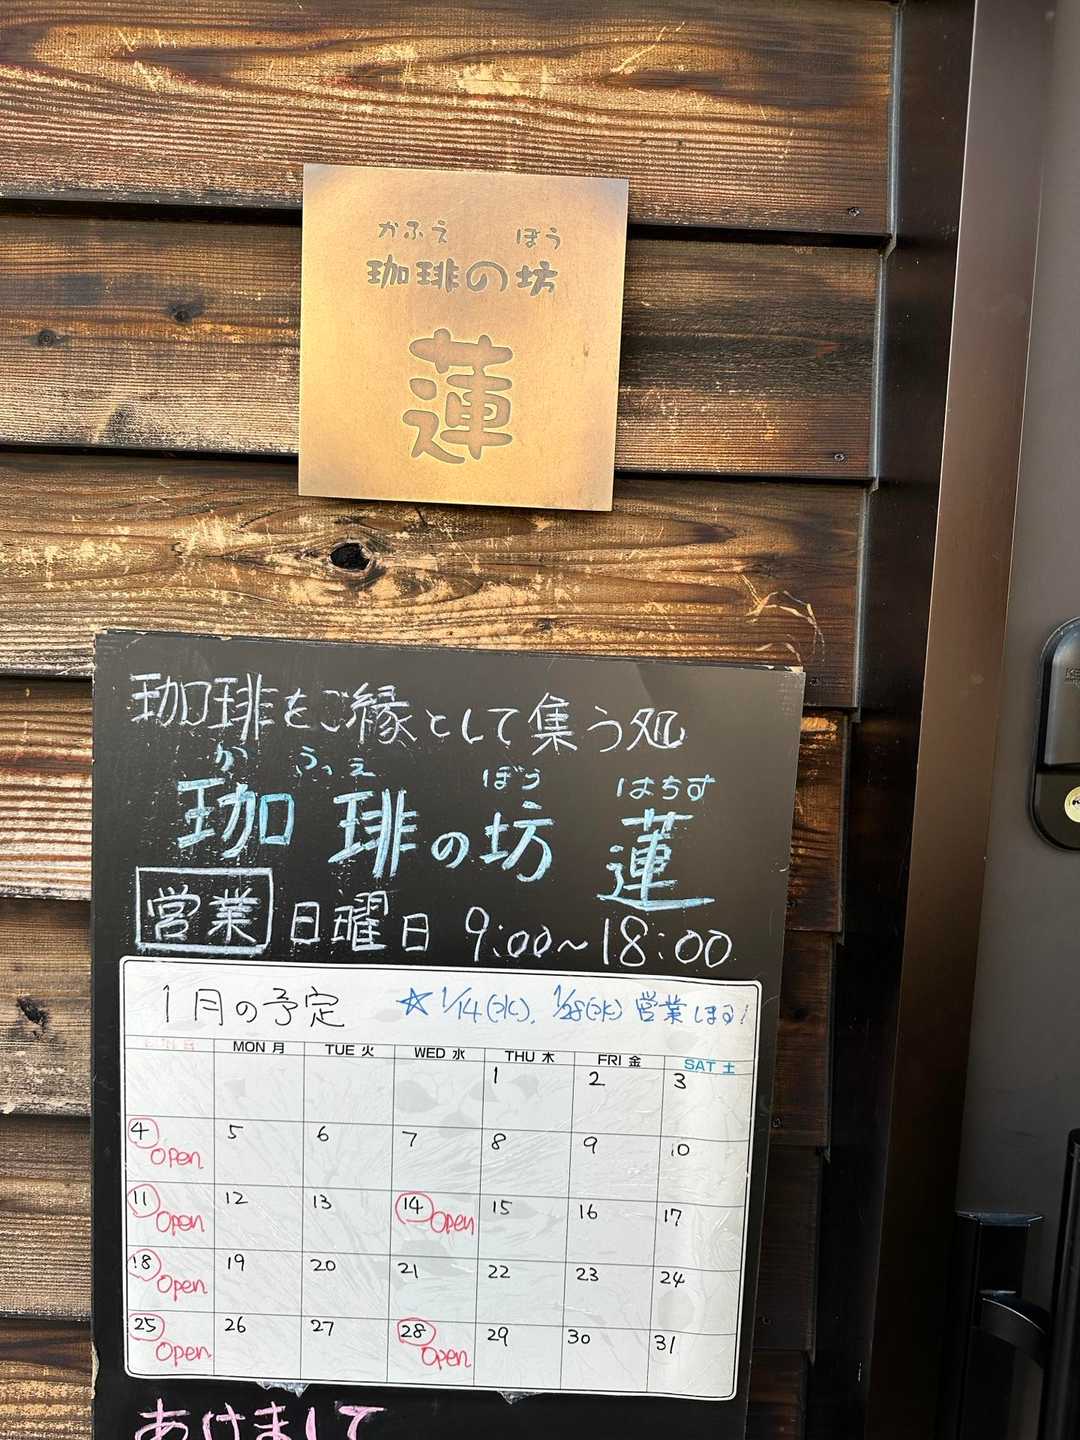 かふえ ぼう
珈琲の坊
蓮
珈琲をご縁として集う処
かふえ ぼう はちす
珈琲の坊 蓮
営業 日曜日 9:00~18:00
1月の予定 ☆1/14(水)、1/28(水)営業します!
SUN 日 MON 月 TUE 火 WED 水 THU 木 FRI 金 SAT 土
1 2 3
4 Open 5 6 7 8 9 10
11 Open 12 13 14 Open 15 16 17
18 Open 19 20 21 22 23 24
25 Open 26 27 28 Open 29 30 31
あけまして